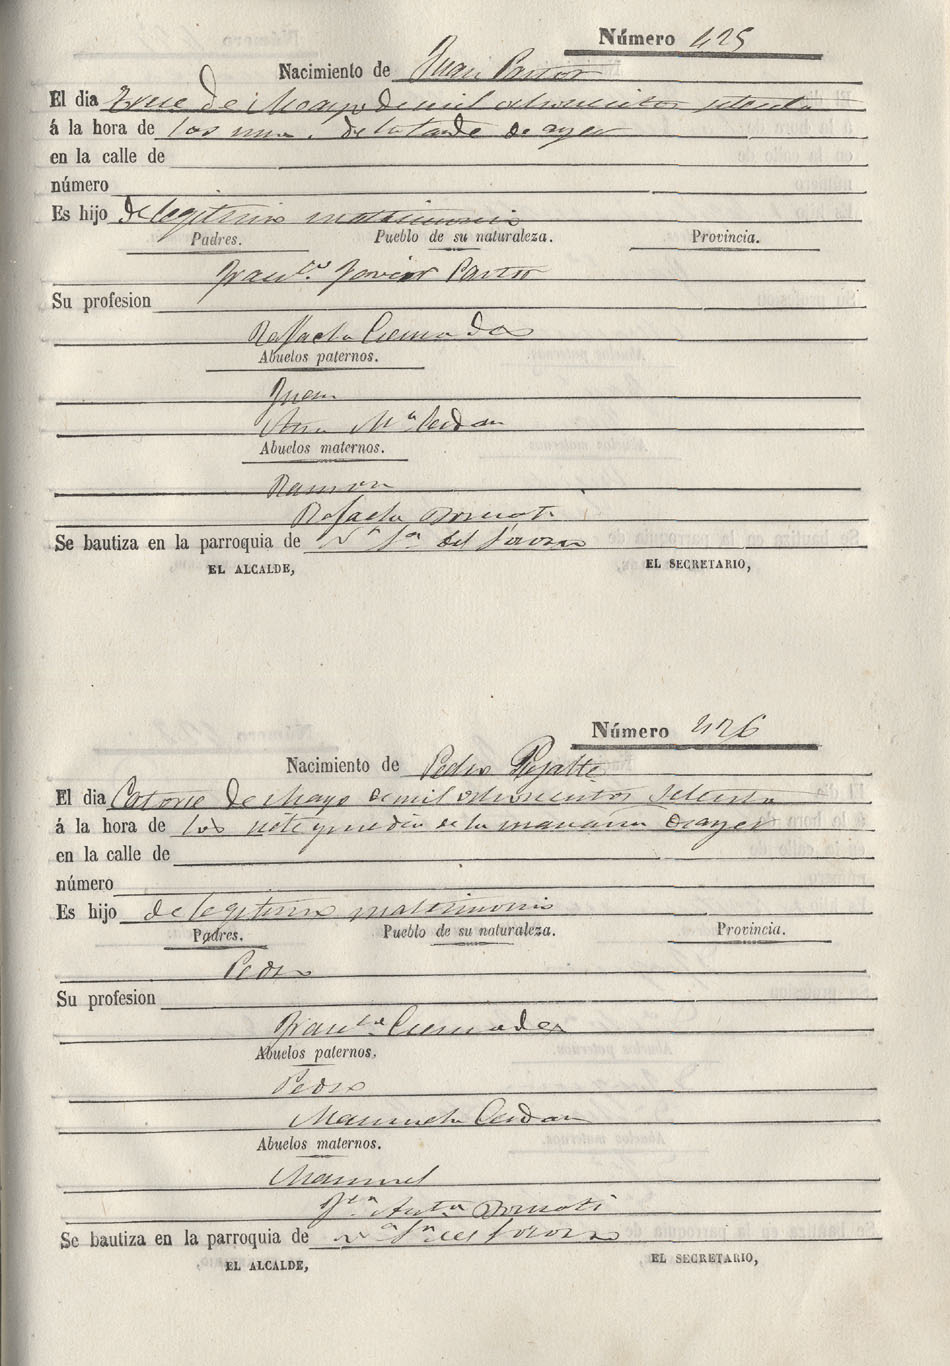 Número 425
Nacimiento de Juan Pastor
El dia Trece de Mayo de mil ochocientos setenta
á la hora de las una de la tarde de ayer
en la calle de
número
Es hijo de legitimo matrimonio
Padres. Pueblo de su naturaleza. Provincia.
Franco Javier Pastor
Su profesion
Rafaela Cremades
Abuelos paternos.
Juan
Ana Ma Cerdan
Abuelos maternos.
Ramon
Rafaela
Se bautiza en la parroquia de Na Sa del Socorro
EL ALCALDE, EL SECRETARIO,
Número 426
Nacimiento de Pedro Pujalte
El dia Catorce de Mayo de mil ochocientos setenta
á la hora de las siete y media de la mañana de ayer
en la calle de
número
Es hijo de legitimo matrimonio
Padres. Pueblo de su naturaleza. Provincia.
Pedro
Su profesion
Franca Cremades
Abuelos paternos.
Pedro
Manuela Cerdan
Abuelos maternos.
Manuel
Anta
Se bautiza en la parroquia de Na Sa del Socorro
EL ALCALDE, EL SECRETARIO,